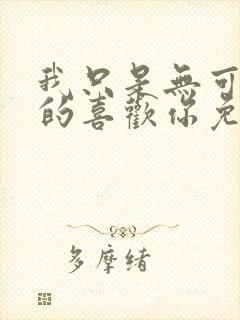 我只是無可
的喜歡你免
多摩緒